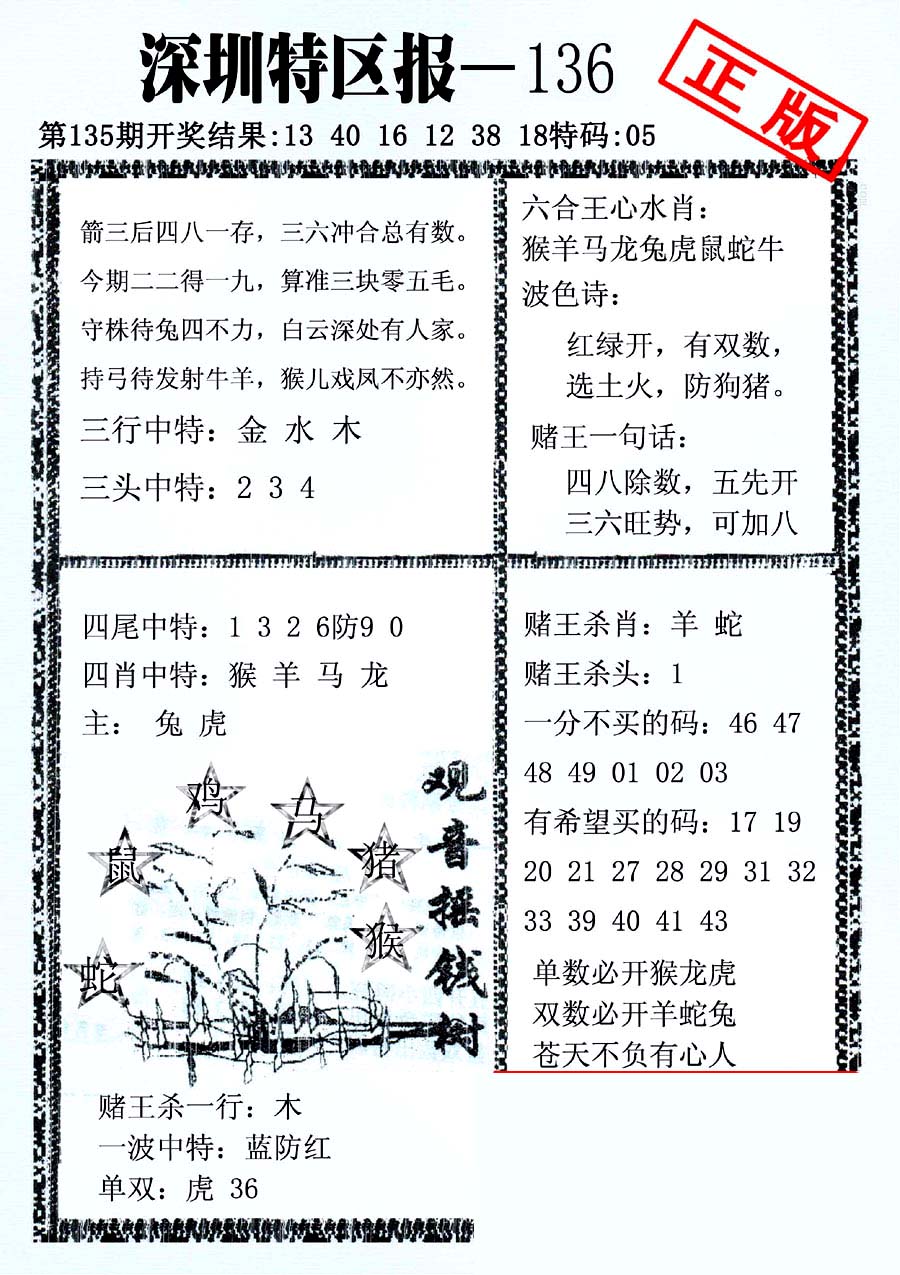 深圳特区报—136
正版
第135期开奖结果:13 40 16 12 38 18特码:05
箭三后四八一存，三六冲合总有数。
今期二二得一九，算准三块零五毛。
守株待兔四不力，白云深处有人家。
持弓待发射牛羊，猴儿戏凤不亦然。
三行中特：金 水 木
三头中特：2 3 4
六合王心水肖：
猴羊马龙兔虎鼠蛇牛
波色诗：
红绿开，有双数，
选土火，防狗猪。
赌王一句话：
四八除数，五先开
三六旺势，可加八
四尾中特：1 3 2 6防9 0
四肖中特：猴 羊 马 龙
主： 兔 虎
鸡
马
鼠
猪
猴
蛇
观音摇钱树
赌王杀一行：木
一波中特：蓝防红
单双：虎 36
赌王杀肖：羊 蛇
赌王杀头：1
一分不买的码：46 47
48 49 01 02 03
有希望买的码：17 19
20 21 27 28 29 31 32
33 39 40 41 43
单数必开猴龙虎
双数必开羊蛇兔
苍天不负有心人